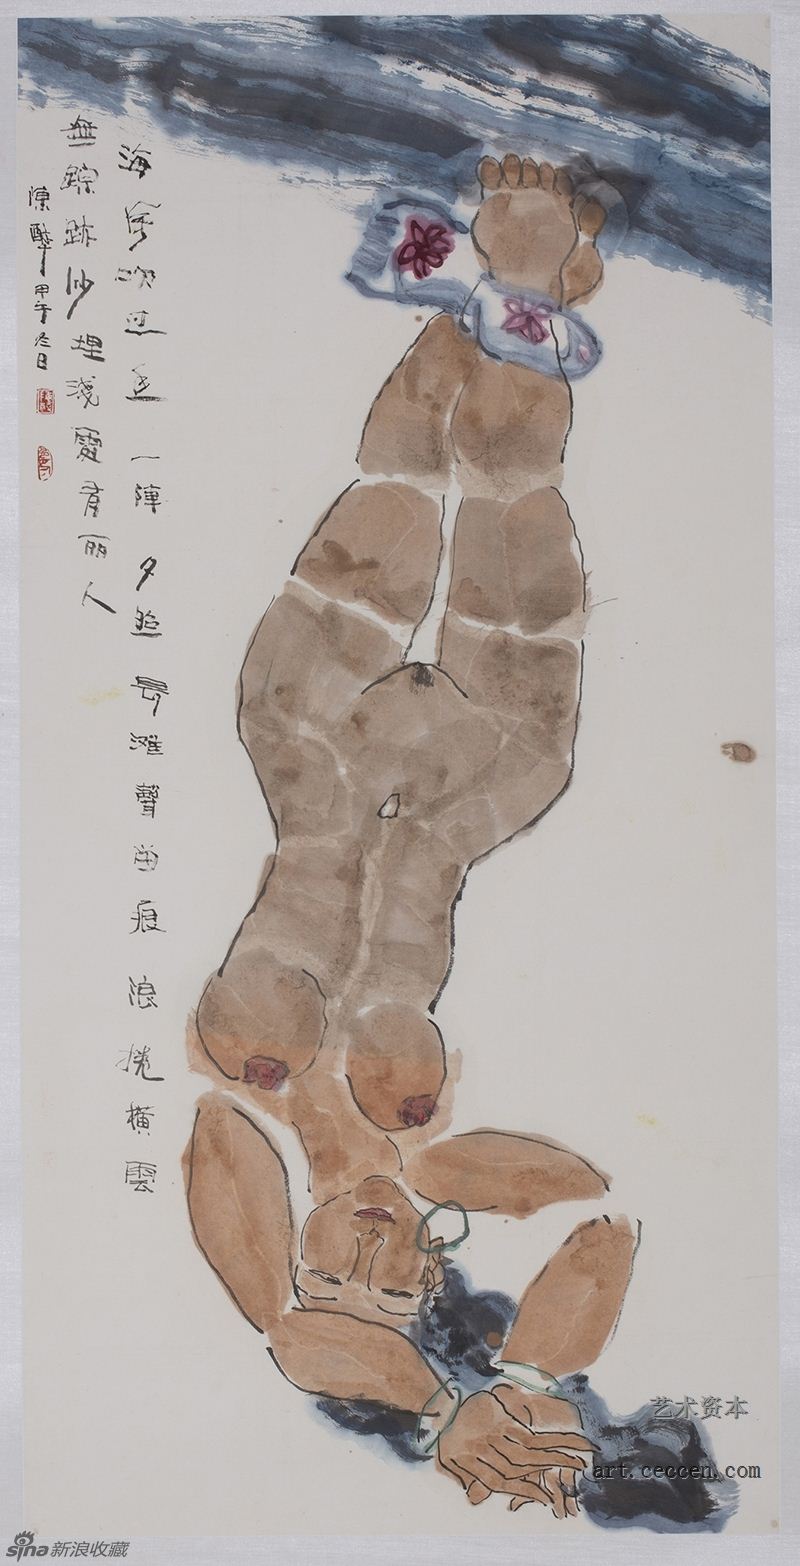 海岸吹过来一陣夕照長滩聲留痕浪捲横雲
無踪跡沙埋淺處有丽人
陳醉甲午冬日
艺术资本
art.ceccen.com
sina新浪收藏